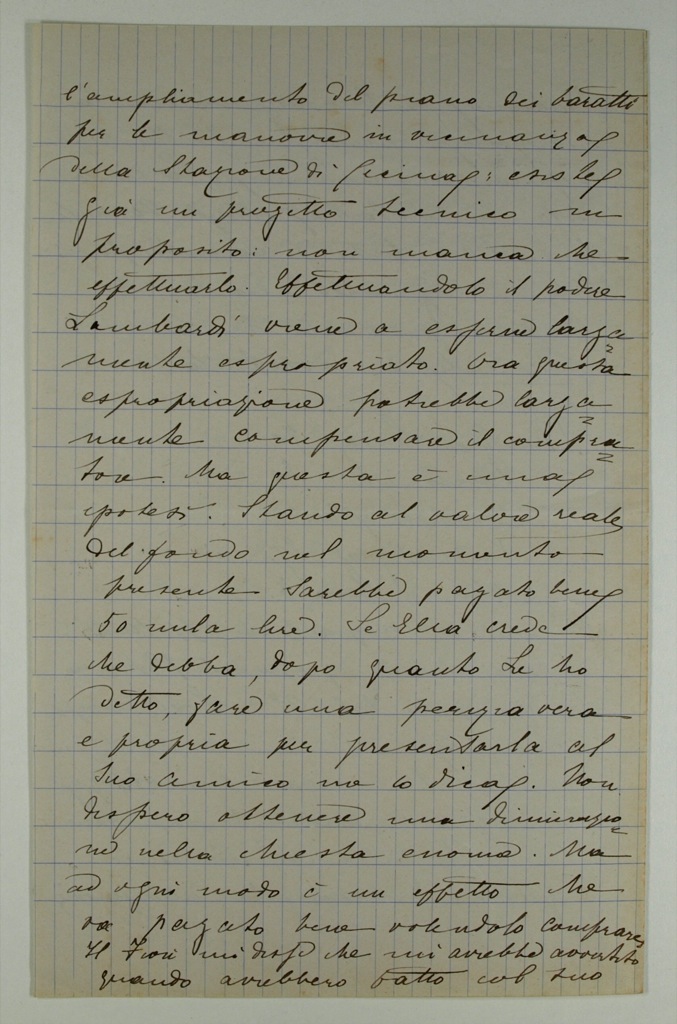 l'ampliamento del piano dei baratti
per le manovre in vicinanza
della Stazione di Cecina: esiste
già un progetto tecnico in
proposito: non manca che
effettuarlo. Effettuandolo il podere
Lombardi viene a esserne larga=
mente espropriato. Ora questa
espropriazione potrebbe larga=
mente compensare il compra=
tore. Ma questa è una
ipotesi. Stando al valore reale
del fondo nel momento
presente sarebbe pagato bene
50 mila lire. Se Ella crede
che debba, dopo quanto Le ho
detto, fare una perizia vera
e propria per presentarla al
Suo amico me lo dica. Non
dispero ottenere una diminuzio=
ne nella chiesta enorme. Ma
ad ogni modo è un effetto che
va pagato bene volendolo comprare
Il mi disse che mi avrebbe avvertito
quando avrebbero fatto col suo